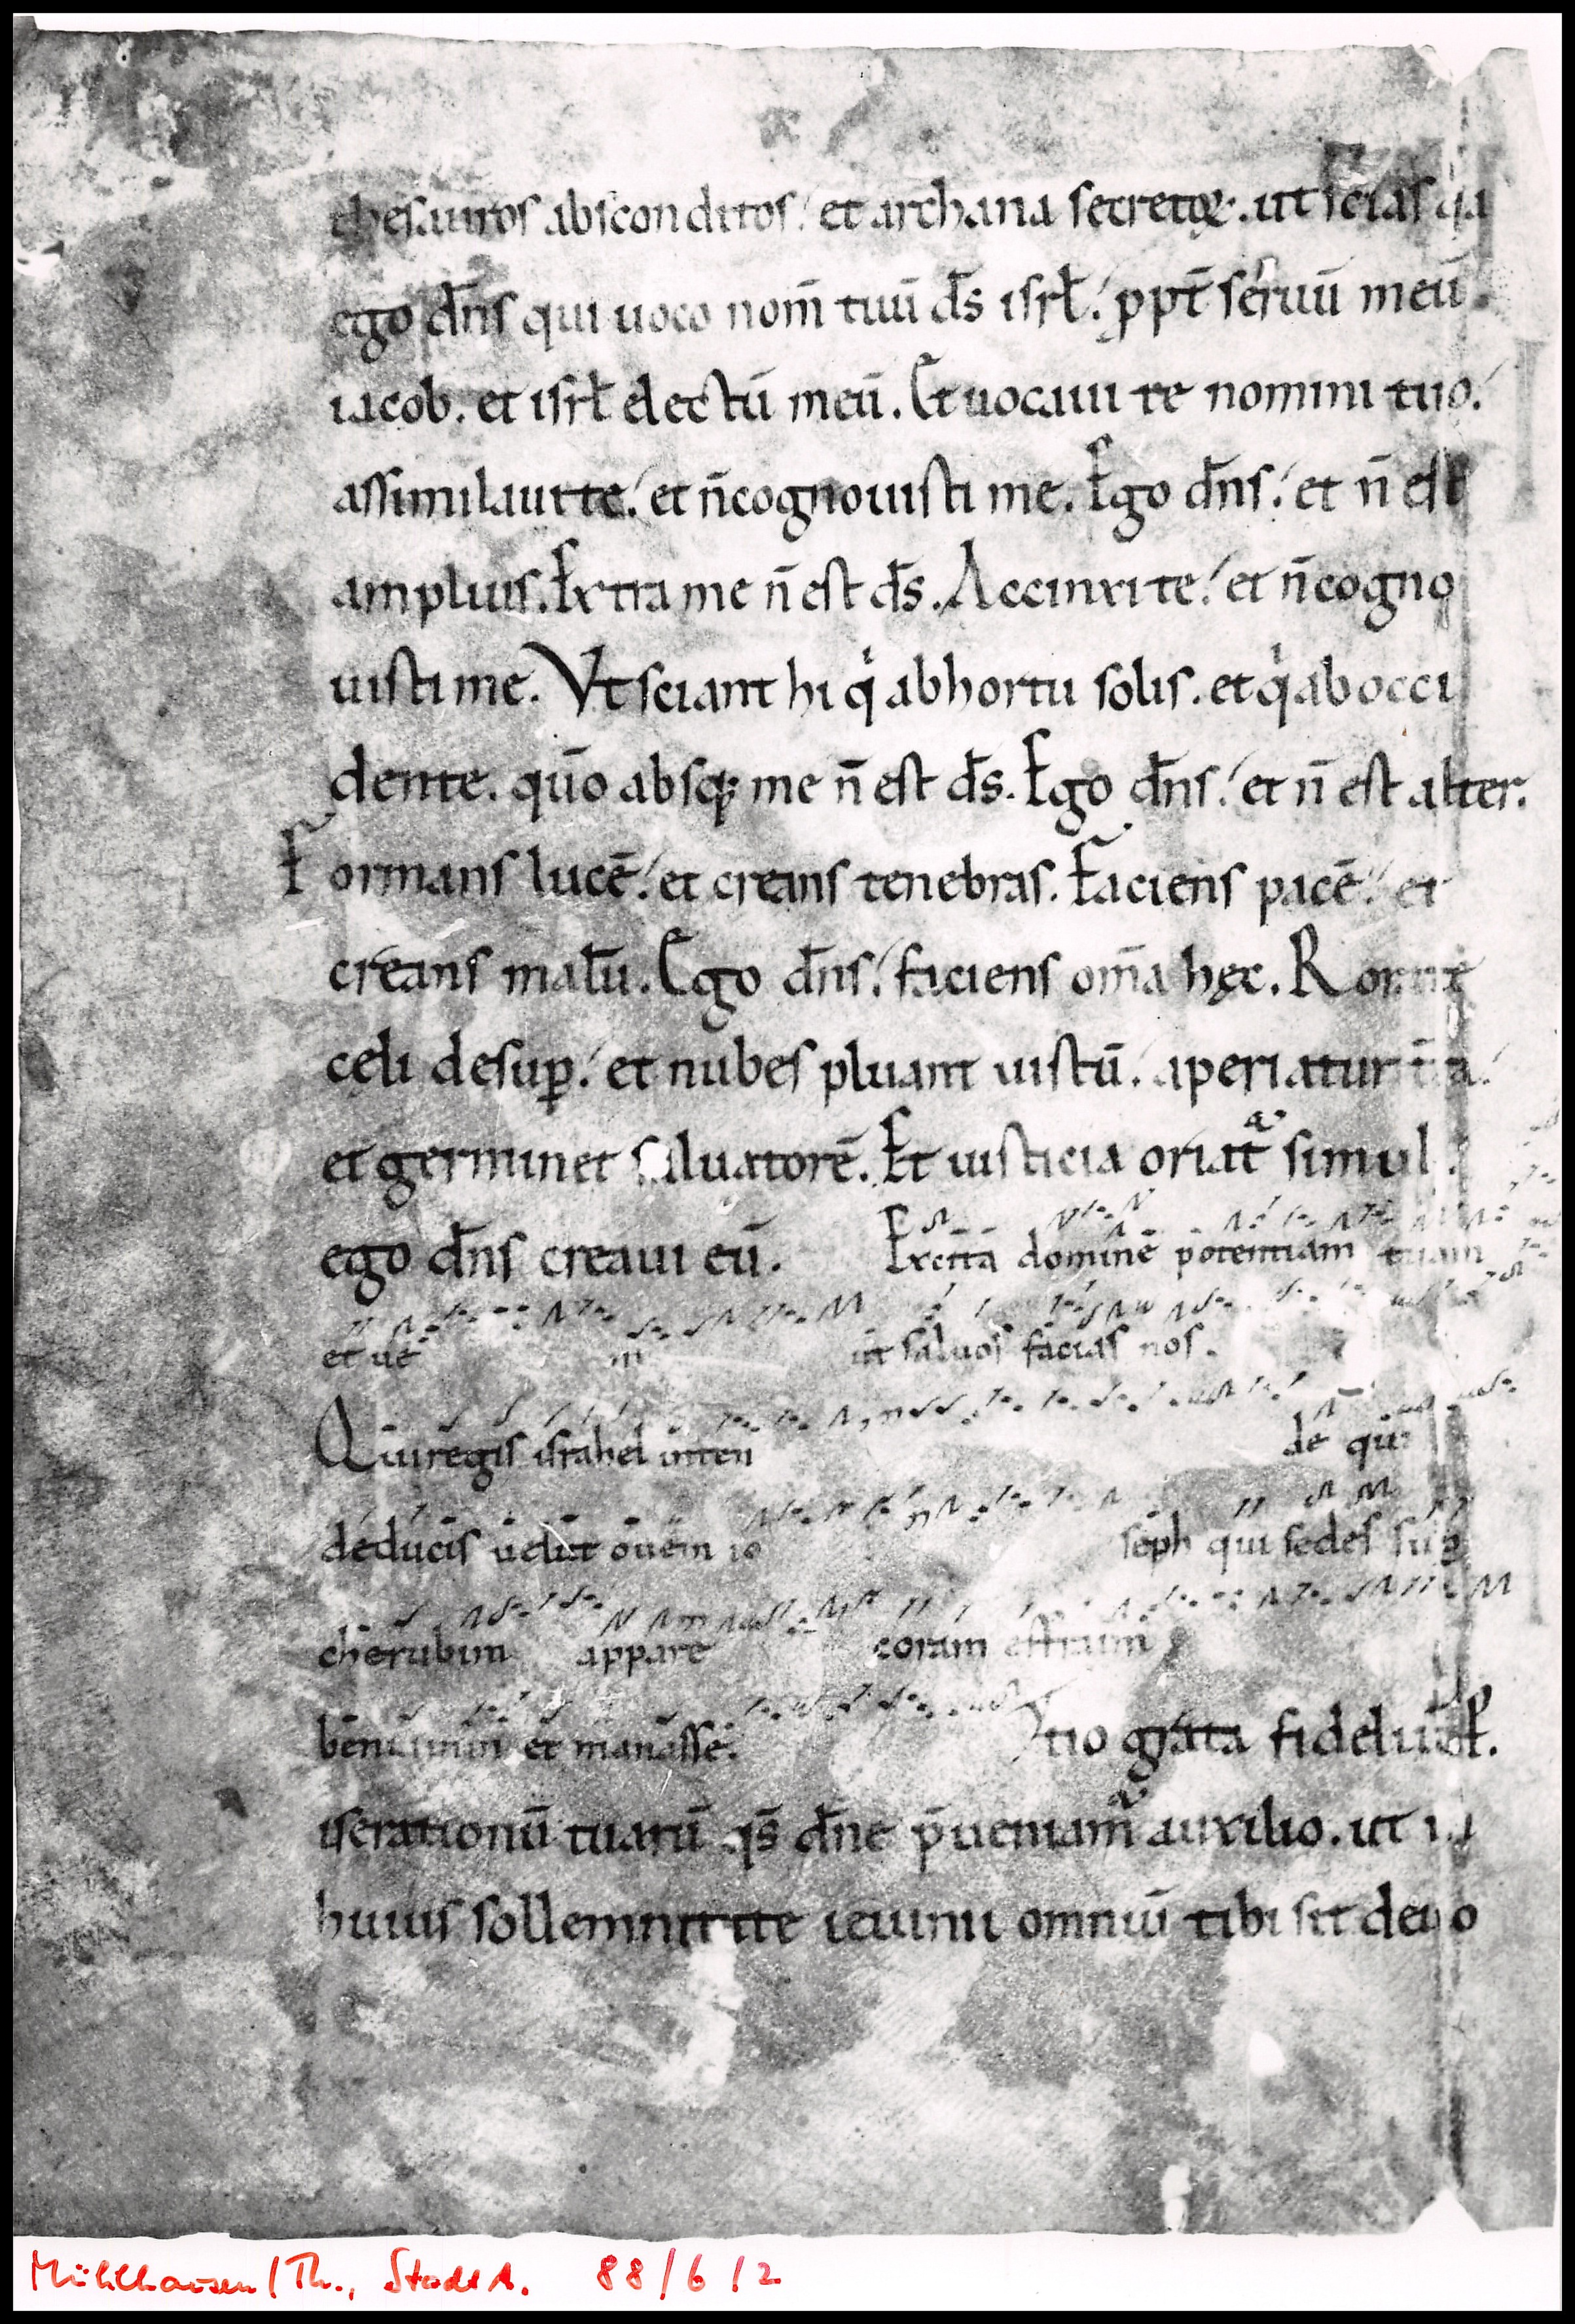 thesauros absconditos. et archana secretoꝝ. ut scias q̓a
ego dn̄s qui uoco nom̄ tuū ds̄ isrł. ꝓpt̄ seruū meū.
iacob. et isrł electū meū. Et uocaui te nomini tuo.
assimilaui te. et n̄ cognouisti me. Ego dn̄s. et n̄ est
amplius. Extra me n̄ est ds̄. Accinxi te. et n̄ cogno
uisti me. Vt sciant hi q̓ ab hortu solis. et q̓ ab occi
dente. qūo absq; me n̄ est ds̄. Ego dn̄s. et n̄ est alter.
Formans lucē. et creans tenebras. Faciens pacē. et
creans malū. Ego dn̄s. faciens om̄a hęc. Rorate
cęli desuꝑ. et nubes pluant iustū. aperiatur t̄ra.
et germinet saluatorē. Et iusticia oriat᷑ simul.
ego dn̄s creaui eū. Excita domine potentiam tuam
et ue ni ut saluos facias nos.
Qui regis israhel inten de qui
deducis uelut ouem io seph qui sedes sup
cherubim appare coram effraim
beniamin et manasse. tio grata fideliū
iserationū tuarū qs̄ dn̄e p̄ueniam᷑ auxilio. ut
huius sollemnitate ieiunii omniū tibi sit deuo
Mühlhausen/Th., StadtA. 88/6/2